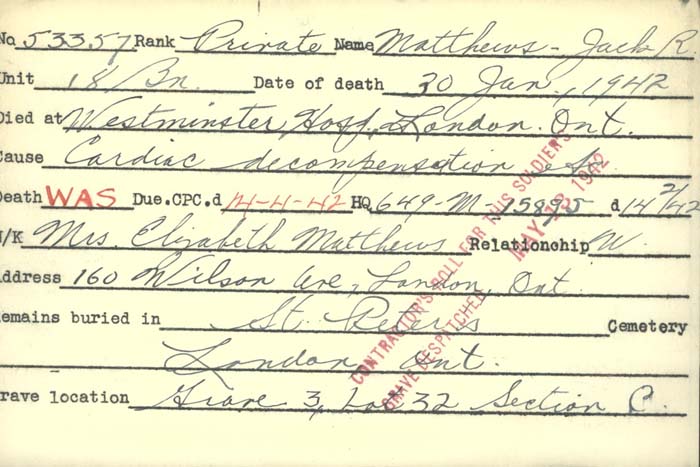 No 53357 Rank Private Name Matthews - Jack R
Unit 18/Bn. Date of death 20 Jan., 1942
Died at Westminster Hosp., London. Ont.
Cause Cardiac decompensation etc.
Death WAS Due.CPC.d 14-4-42 HQ 649-M-15895 d 14 2/42
N/K Mrs. Elizabeth Matthews Relationship W.
Address 160 Wilson Ave, London, Ont.
Remains buried in St. Peter's Cemetery
London, Ont.
Grave location Grave 3, Lot 32 Section C.
CONTRACTOR'S ROLL FOR THIS SOLDIER'S
GRAVE DESPATCHED MAY 1942